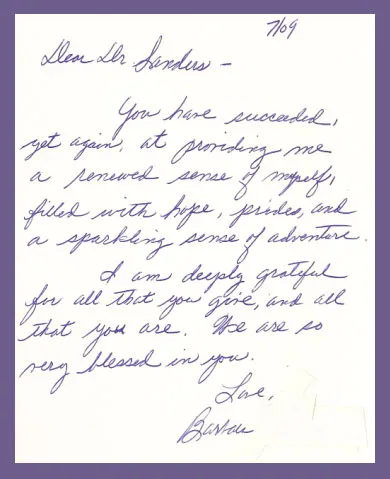 7/09
Dear Dr Sanders -
You have succeeded,
yet again, at providing me
a renewed sense of myself,
filled with hope, prides, and
a sparkling sense of adventure.
I am deeply grateful
for all that you give, and all
that you are. We are so
very blessed in you.
Love,